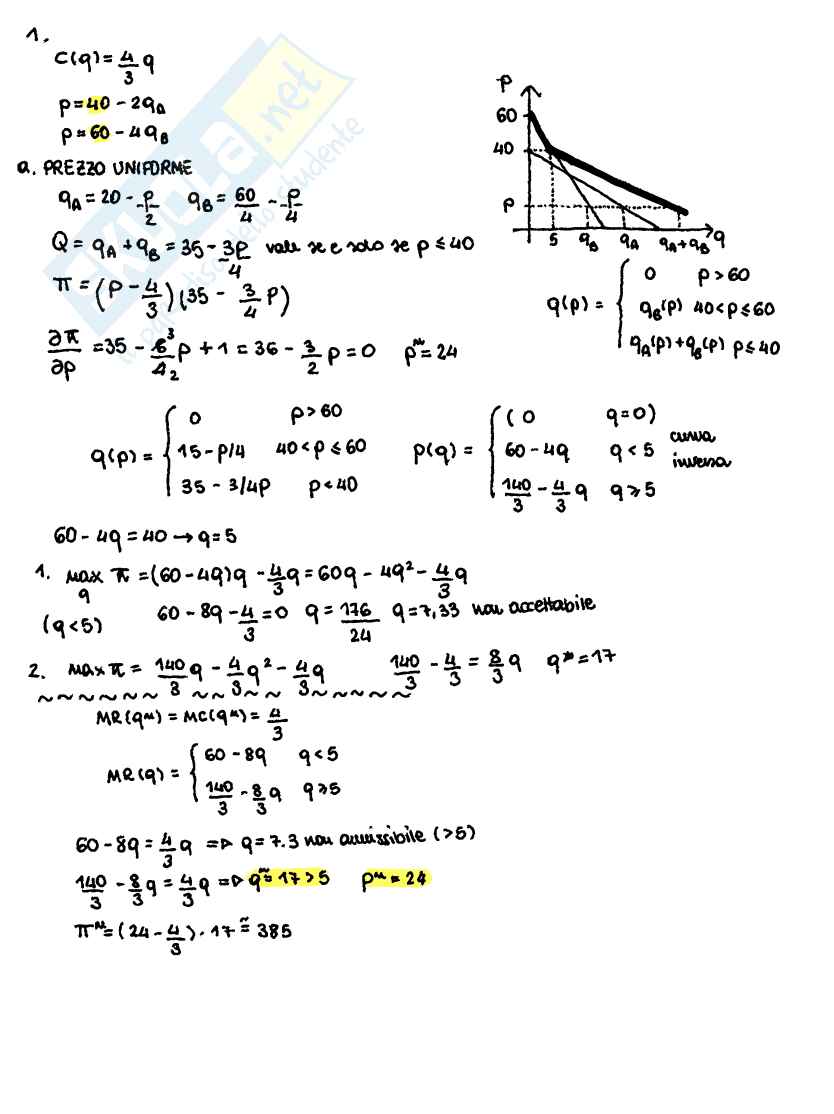 1.
C(q) = 4/3 q
p = 40 - 2qA
p = 60 - 4qB
a. PREZZO UNIFORME
qA = 20 - p/2   qB = 60/4 - p/4
Q = qA + qB = 35 - 3p/4 vale se e solo se p ≤ 40
π = (p - 4/3)(35 - 3/4 p)
∂π/∂p = 35 - 6/4 3/2 p + 1 = 36 - 3/2 p = 0   pᴹ = 24
p
60
40
p
5 qB qA qA+qB q
q(p) = { 0   p > 60
qB(p)   40 < p ≤ 60
qA(p) + qB(p)   p ≤ 40
q(p) = { 0   p > 60
15 - p/4   40 < p ≤ 60
35 - 3/4p   p < 40
p(q) = { ( 0   q = 0)
60 - 4q   q < 5
140/3 - 4/3 q   q ≥ 5
curva
inversa
60 - 4q = 40 → q = 5
1. max π = (60 - 4q)q - 4/3 q = 60q - 4q² - 4/3 q
q
(q < 5)   60 - 8q - 4/3 = 0   q = 176/24   q = 7,33 non accettabile
2. max π = 140/3 q - 4/3 q² - 4/3 q   140/3 - 4/3 = 8/3 q   q* = 17
~~~~~~~~~~~~~~~~~~~
MR(qᴹ) = MC(qᴹ) = 4/3
MR(q) = { 60 - 8q   q < 5
140/3 - 8/3 q   q ≥ 5
60 - 8q = 4/3 q ⇒ q = 7.3 non ammissibile (>5)
140/3 - 8/3 q = 4/3 q ⇒ qᴹ = 17 > 5   pᴹ = 24
πᴹ = (24 - 4/3) · 17 ≅ 385
SKUOLA.net
il paradiso dello studente